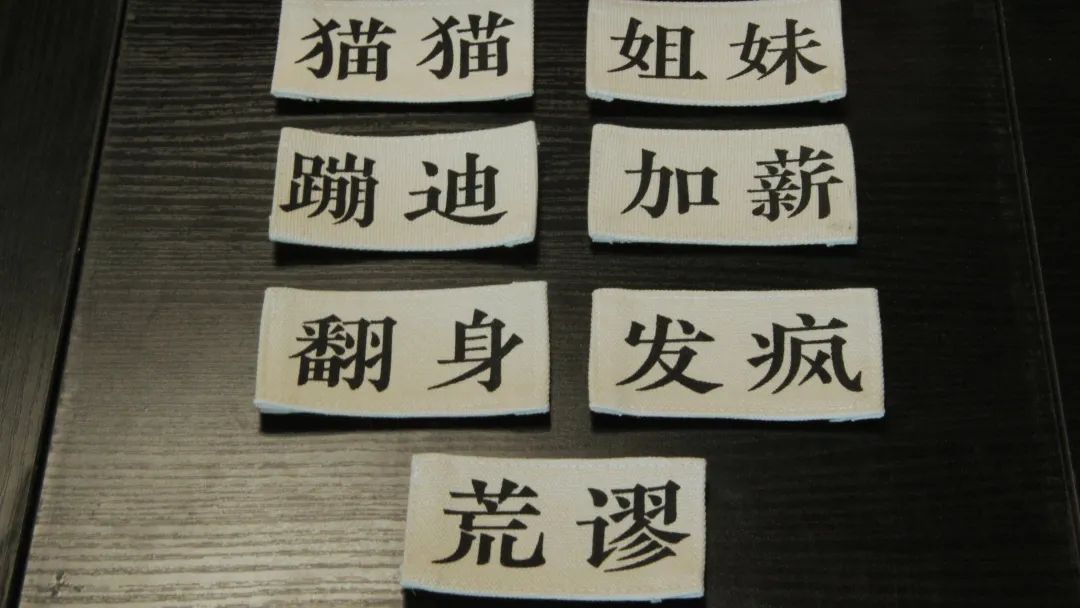 猫猫 姐妹
蹦迪 加薪
翻身 发疯
荒谬